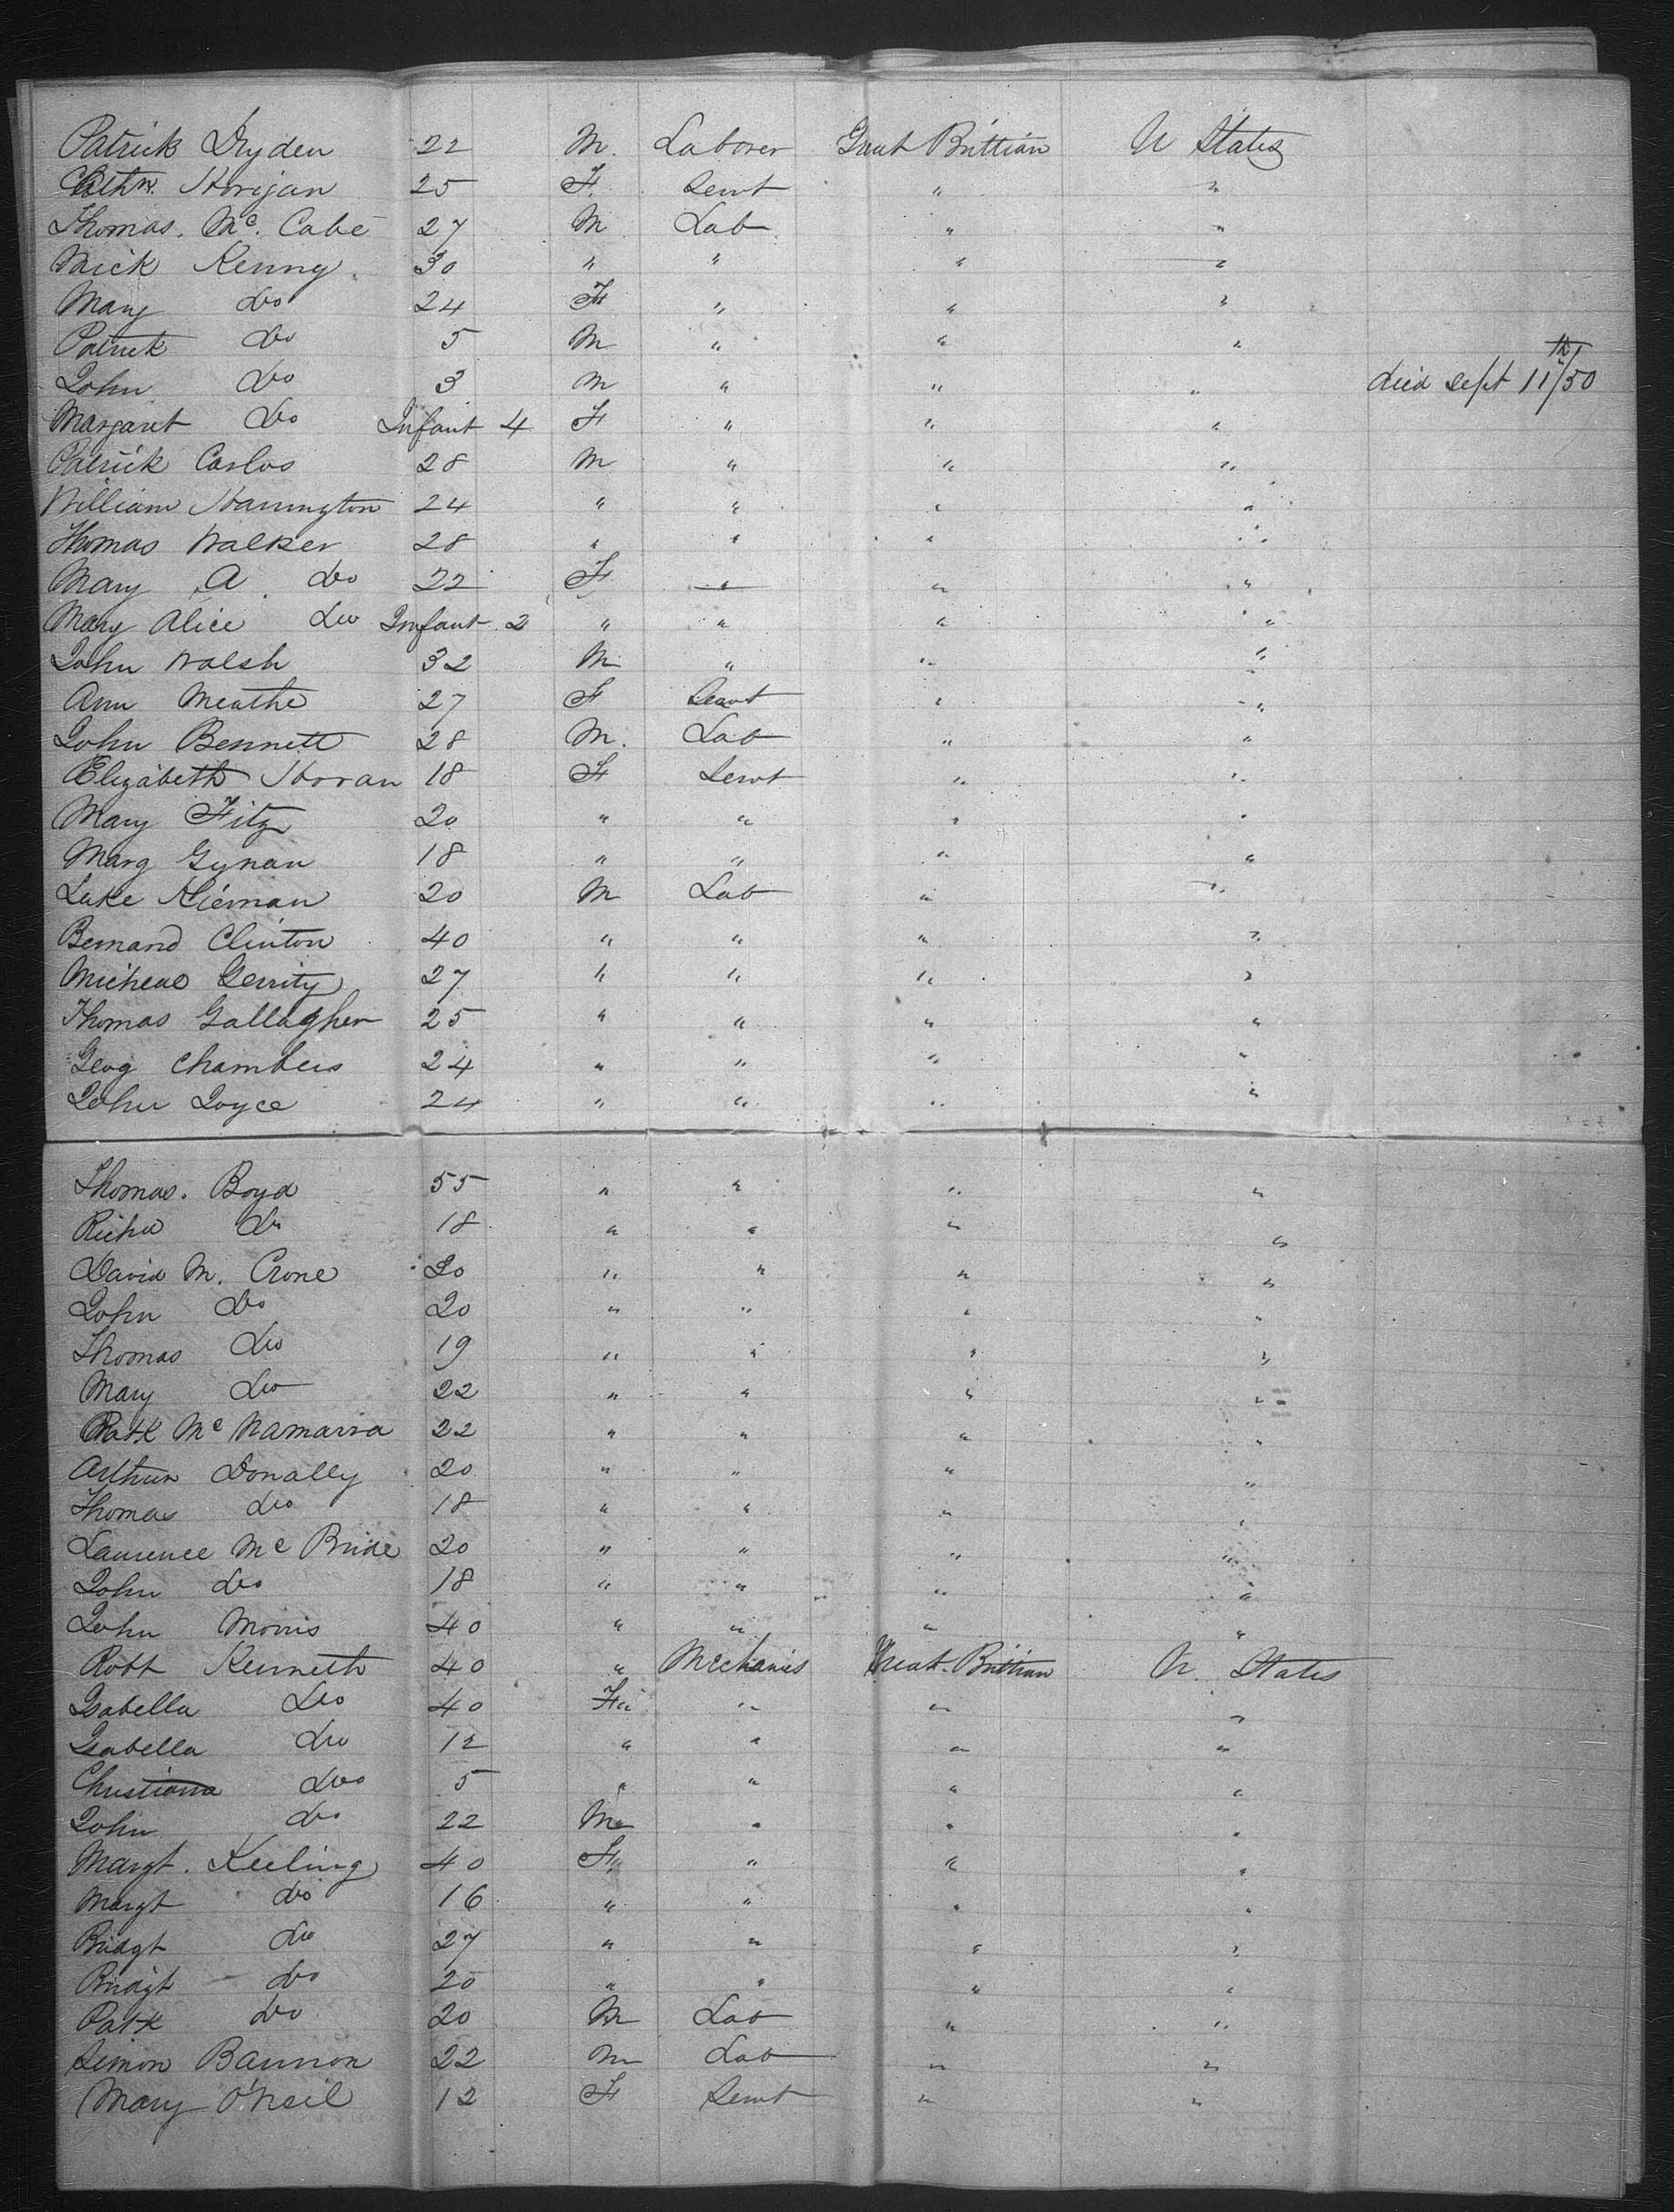 Patrick Dryden 22 M. Laborer Great Brittian U States
Cathn. Horigan 25 F. Servt " "
Thomas. Mc. Cabe 27 M Lab " "
Mick Kenny. 30 " " " "
Mary Do 24 F " " "
Patrick Do 5 M " " "
John Do 3 M " " " died sept 11/50
Margaret Do Infant 4 F " " "
Patrick Carlos 28 M " " "
William Harrington 24 " " " "
Thomas Walker 28 " " " "
Mary A. Do 22 F " " "
Mary Alice Do Infant 2 " " " "
John Walsh 32 M " " "
Ann Meathe 27 F Servt " "
John Bennett 28 M. Lab " "
Elizabeth Horan 18 F Servt " "
Mary Fitz 20 " " " "
Marg Gynan 18 " " " "
Luke Kiernan 20 M Lab " "
Bernard Clinton 40 " " " "
Micheal Gerrity 27 " " " "
Thomas Gallagher 25 " " " "
Geog Chambers 24 " " " "
John Joyce 24 " " " "
Thomas. Boyd 55 " " " "
Richd Do 18 " " " "
David M. Crone 20 " " " "
John Do 20 " " " "
Thomas Do 19 " " " "
Mary Do 22 " " " "
Patk Mc Namarra 22 " " " "
Arthur Donally 20 " " " "
Thomas Do 18 " " " "
Laurence Mc Bride 20 " " " "
John Do 18 " " " "
John Morris 40 " " " "
Robt Kenneth 40 " Mechanics Great Brittian U. States
Isabella Do 40 F " " "
Isabella Do 12 " " " "
Christiana Do 5 " " " "
John Do 22 M " " "
Margt. Keeling 40 F " " "
Margt Do 16 " " " "
Bridgt Do 27 " " " "
Bridgt Do 20 " " " "
Patk Do 20 M Lab " "
Simon Bannon 22 M Lab " "
Mary O'Neil 12 F Servt " "